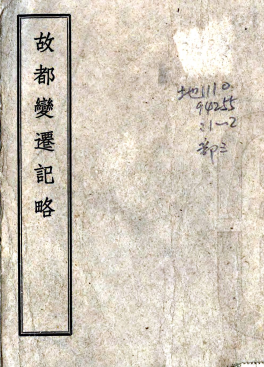 故都變遷記略
地110
94255
三1-2
部三